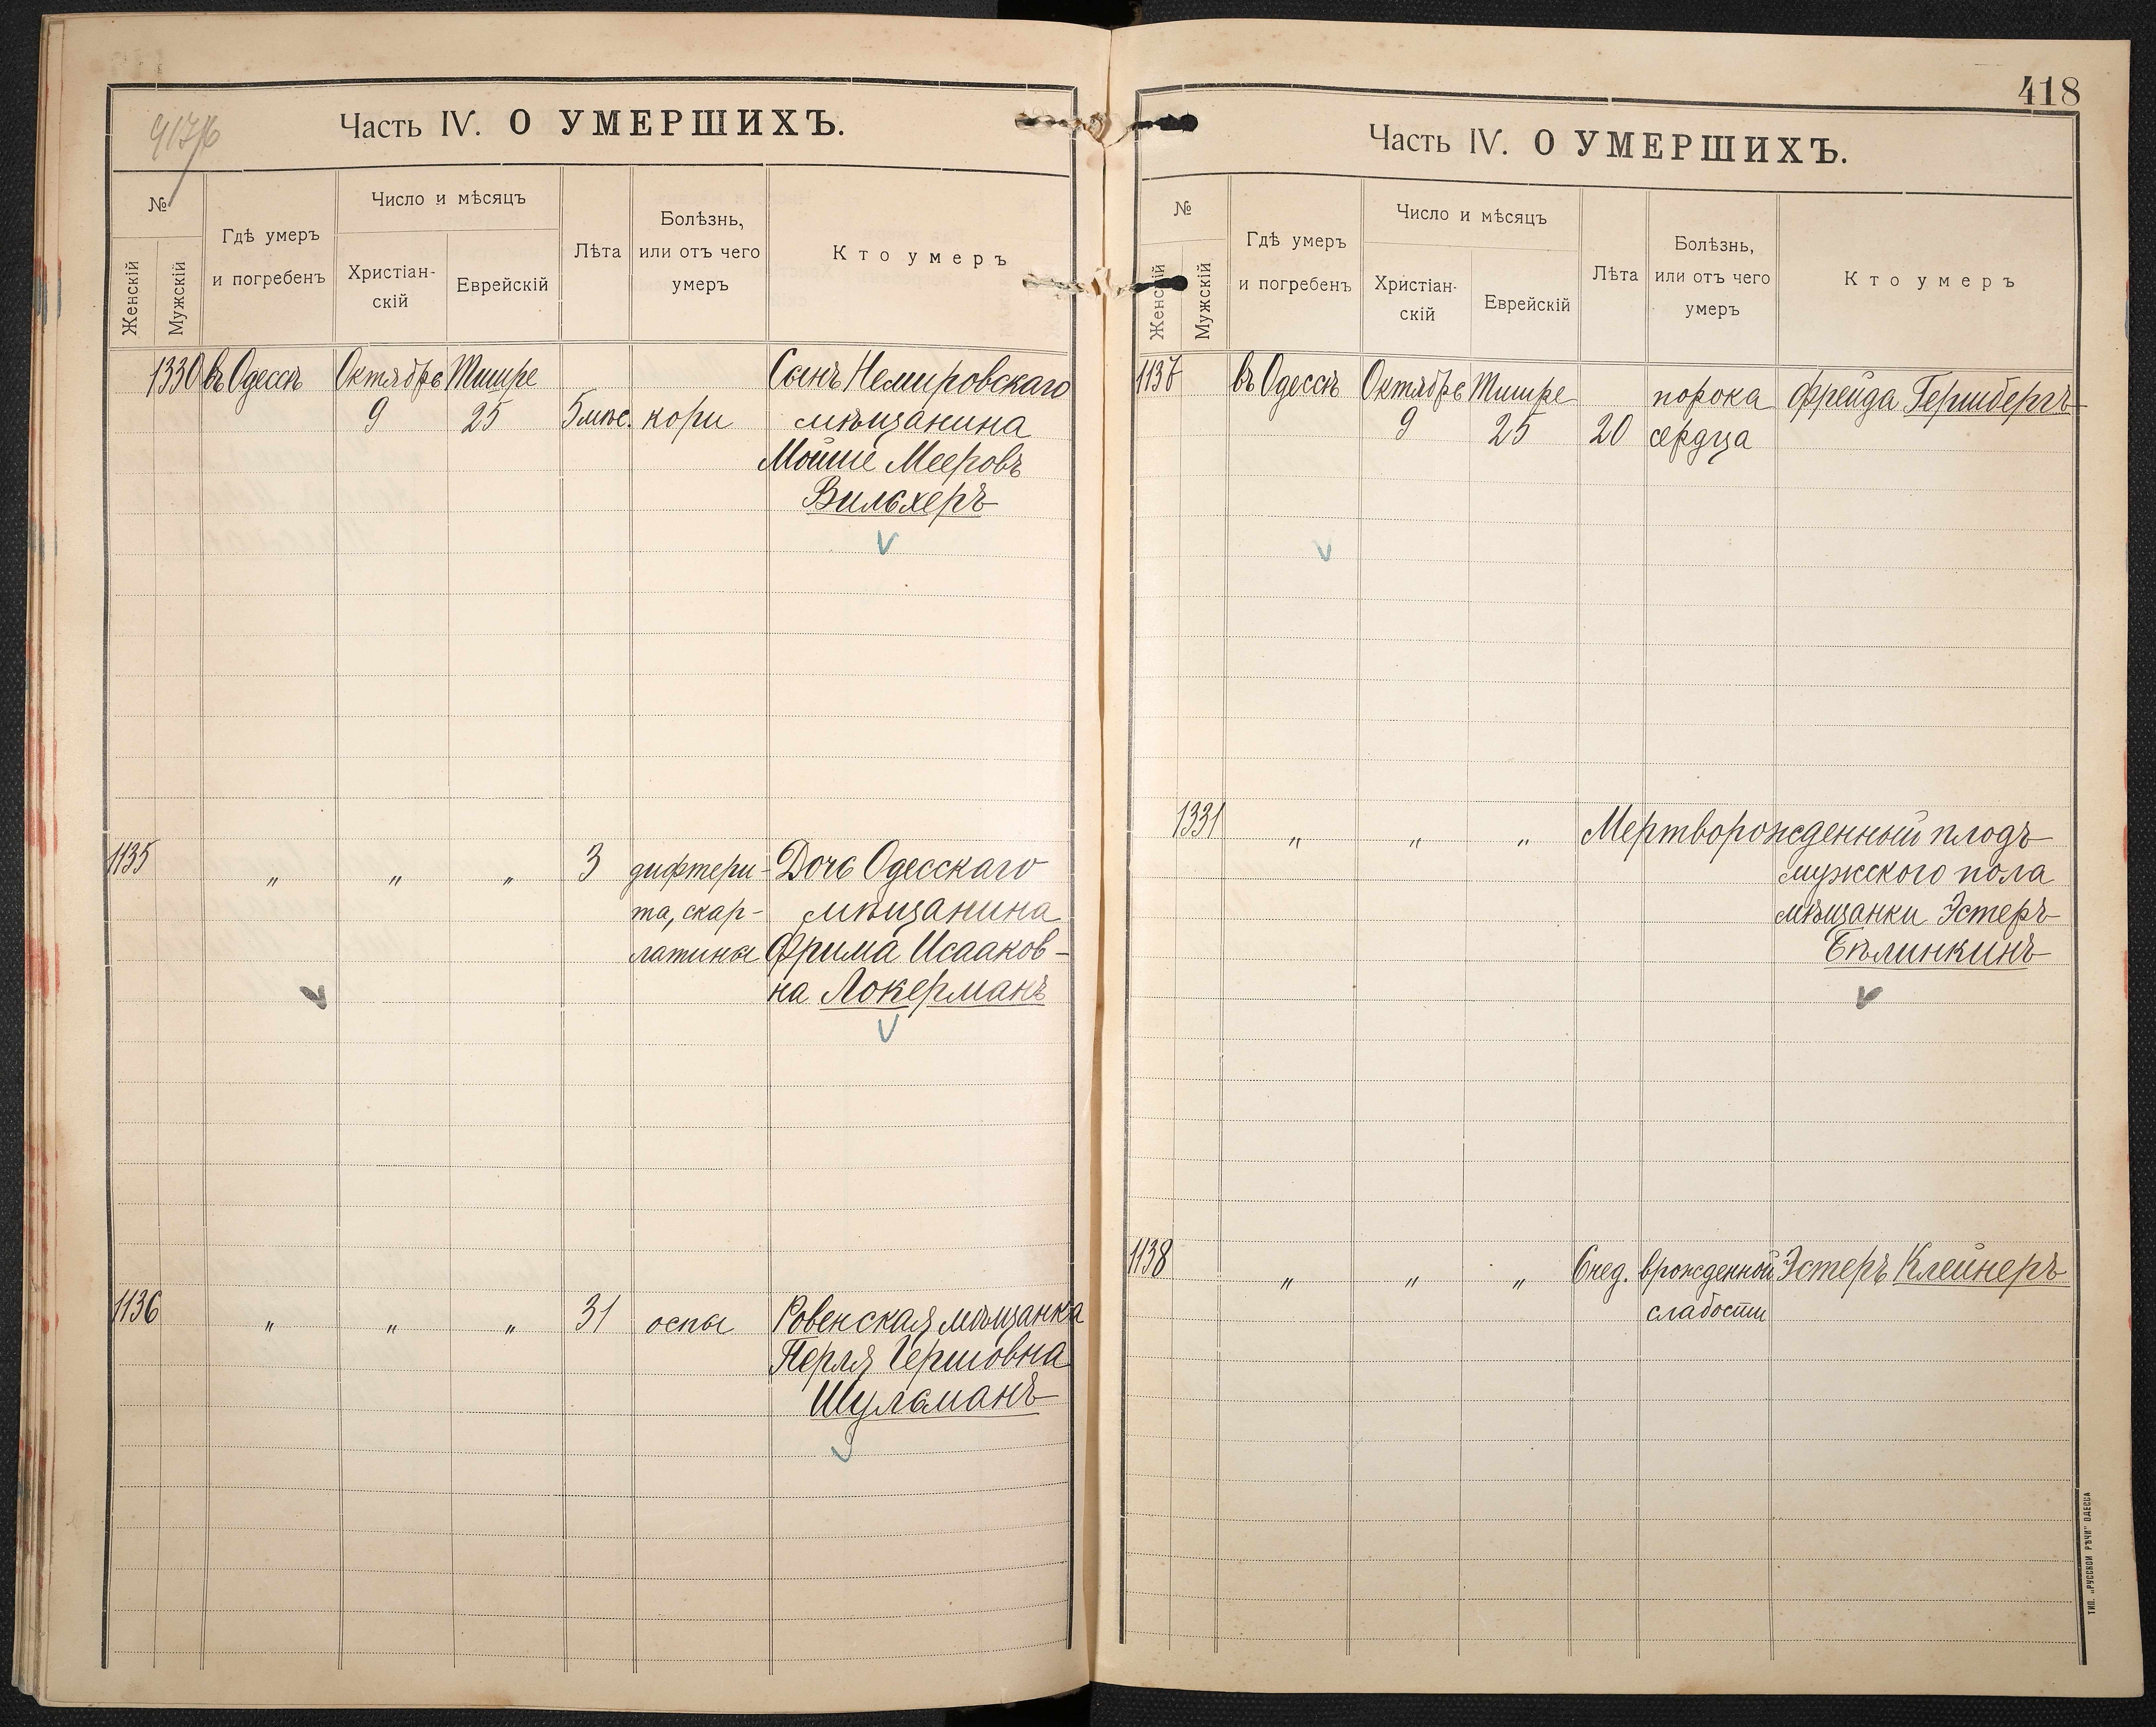 417/б
Часть IV. О УМЕРШИХЪ.
№
Женскій
Мужскій
Гдѣ умеръ
и погребенъ
Число и мѣсяцъ
Христіан-
скій
Еврейскій
Лѣта
Болѣзнь,
или отъ чего
умеръ
Кто умеръ
1330 въ Одессѣ Октябрь Тишре Сынъ Немировскаго
9 25 5 мѣс. кори мѣщанина
Мойше Мееровъ
Вильхеръ
1135 " " " 3 дифтери- Дочь Одесскаго
та, скар- мѣщанина
латины Фрима Исааков-
на Локерманъ
1136 " " " 31 оспы Ровенская мѣщанка
Перля Гершовна
Шульманъ
418
Часть IV. О УМЕРШИХЪ.
№
Женскій
Мужскій
Гдѣ умеръ
и погребенъ
Число и мѣсяцъ
Христіан-
скій
Еврейскій
Лѣта
Болѣзнь,
или отъ чего
умеръ
Кто умеръ
1137 въ Одессѣ Октябрь Тишре порока Фрейда Гершбергъ
9 25 20 сердца
1331 " " " Мертворожденный плодъ
мужского пола
мѣщанки Эстеръ
Бѣлинкинъ
1138 " " " 6 нед. врожденной Эстеръ Клейнеръ
слабости
ТИП. „РУССКОЙ РѢЧИ" ОДЕССА